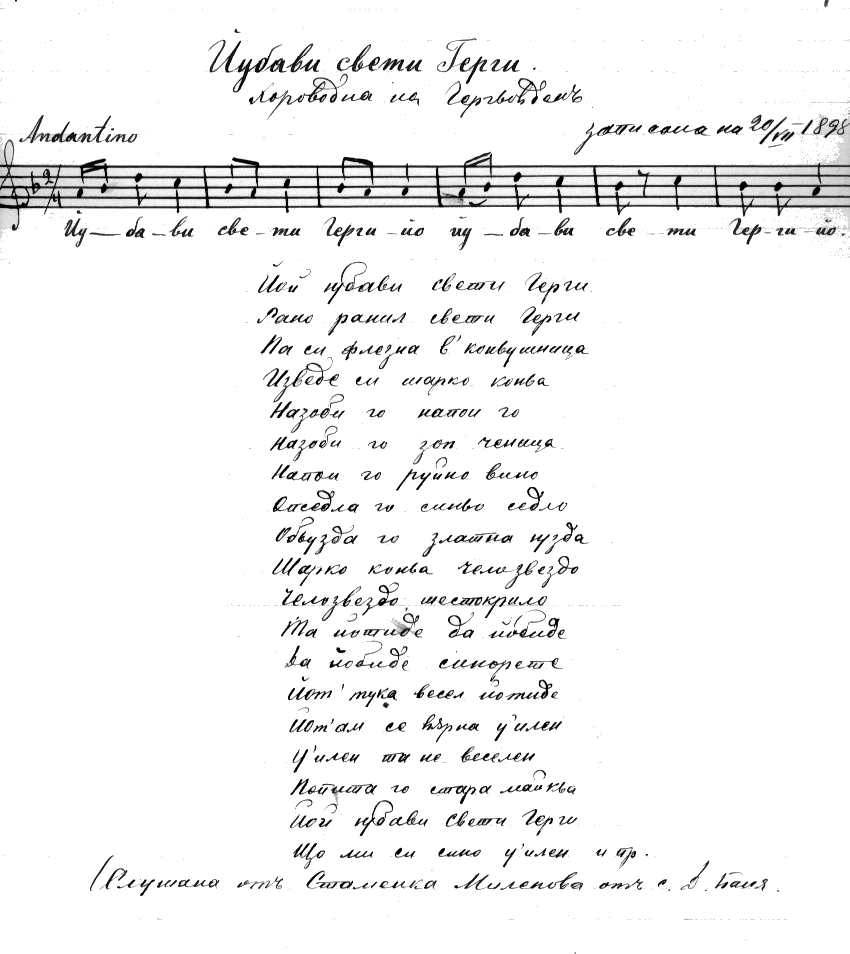 Йубави свети Герги.
Хороводна на Гергьовденъ
Andantino
записана на 20/VII 1898
2/4
Йу — ба — ви све — ти Герги — йо йу — ба — ви све — ти Гер — ги — йо.
Йой йубави свети Герги
Рано ранил свети Герги
Па си флезна в' конвушница
Изведе си шарко коньа
Назоби го напои го
Назоби го зоп ченица
Напои го руйно вино
Опседла го синьо седло
Обьузда го златна йузда
Шарко коньа челозвездо
Челозвездо шестокрило
Та йотиде да йобиде
Да йобиде синорете
Йот' тука весел йотиде
Йот'ам се върна у'илен
У'илен та не веселен
Попита го стара майкьа
Йой йубави свети Герги
Що ми си сино у'илен и пр.
(Слушана отъ Стаменка Миленова отъ с. Д. Баня.